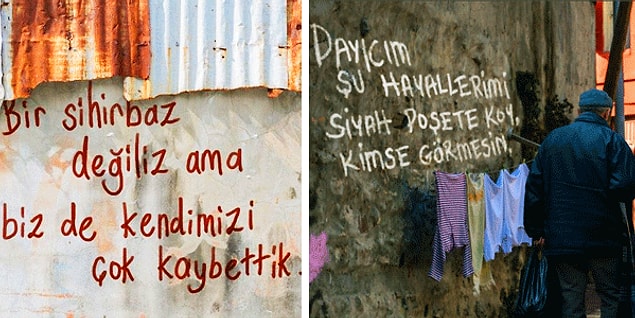 Bir sihirbaz
değiliz ama
biz de kendimizi
çok kaybettik.
DAYICIM
ŞU HAYALLERİMİ
SİYAH POŞETE KOY,
KİMSE GÖRMESİN.